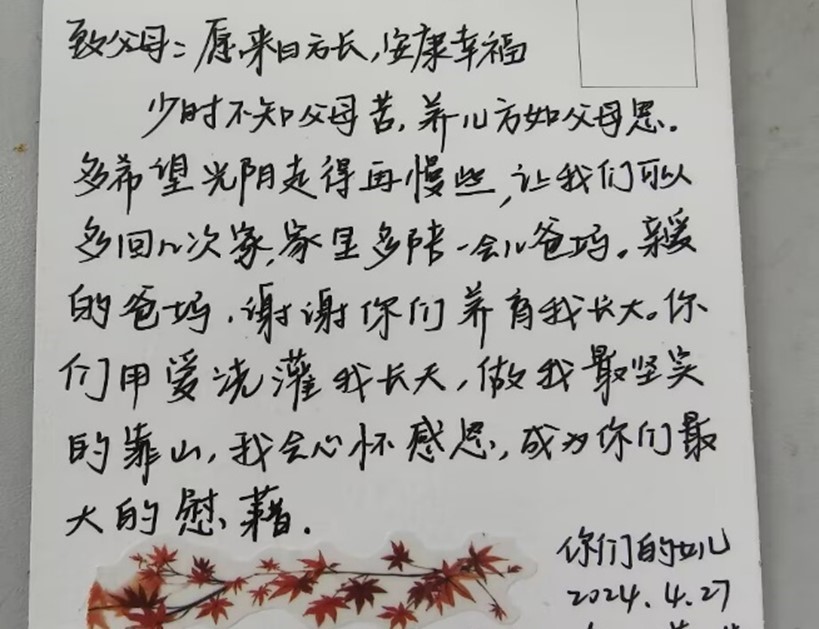 致父母：愿来日方长，安康幸福
少时不知父母苦，养儿方知父母恩。
多希望光阴走得再慢些，让我们可以
多回几次家，家里多陪一会儿爸妈。亲爱
的爸妈，谢谢你们养育我长大。你
们用爱浇灌我长大，做我最坚实
的靠山，我会心怀感恩，成为你们最
大的慰藉.
你们的女儿
2024.4.27